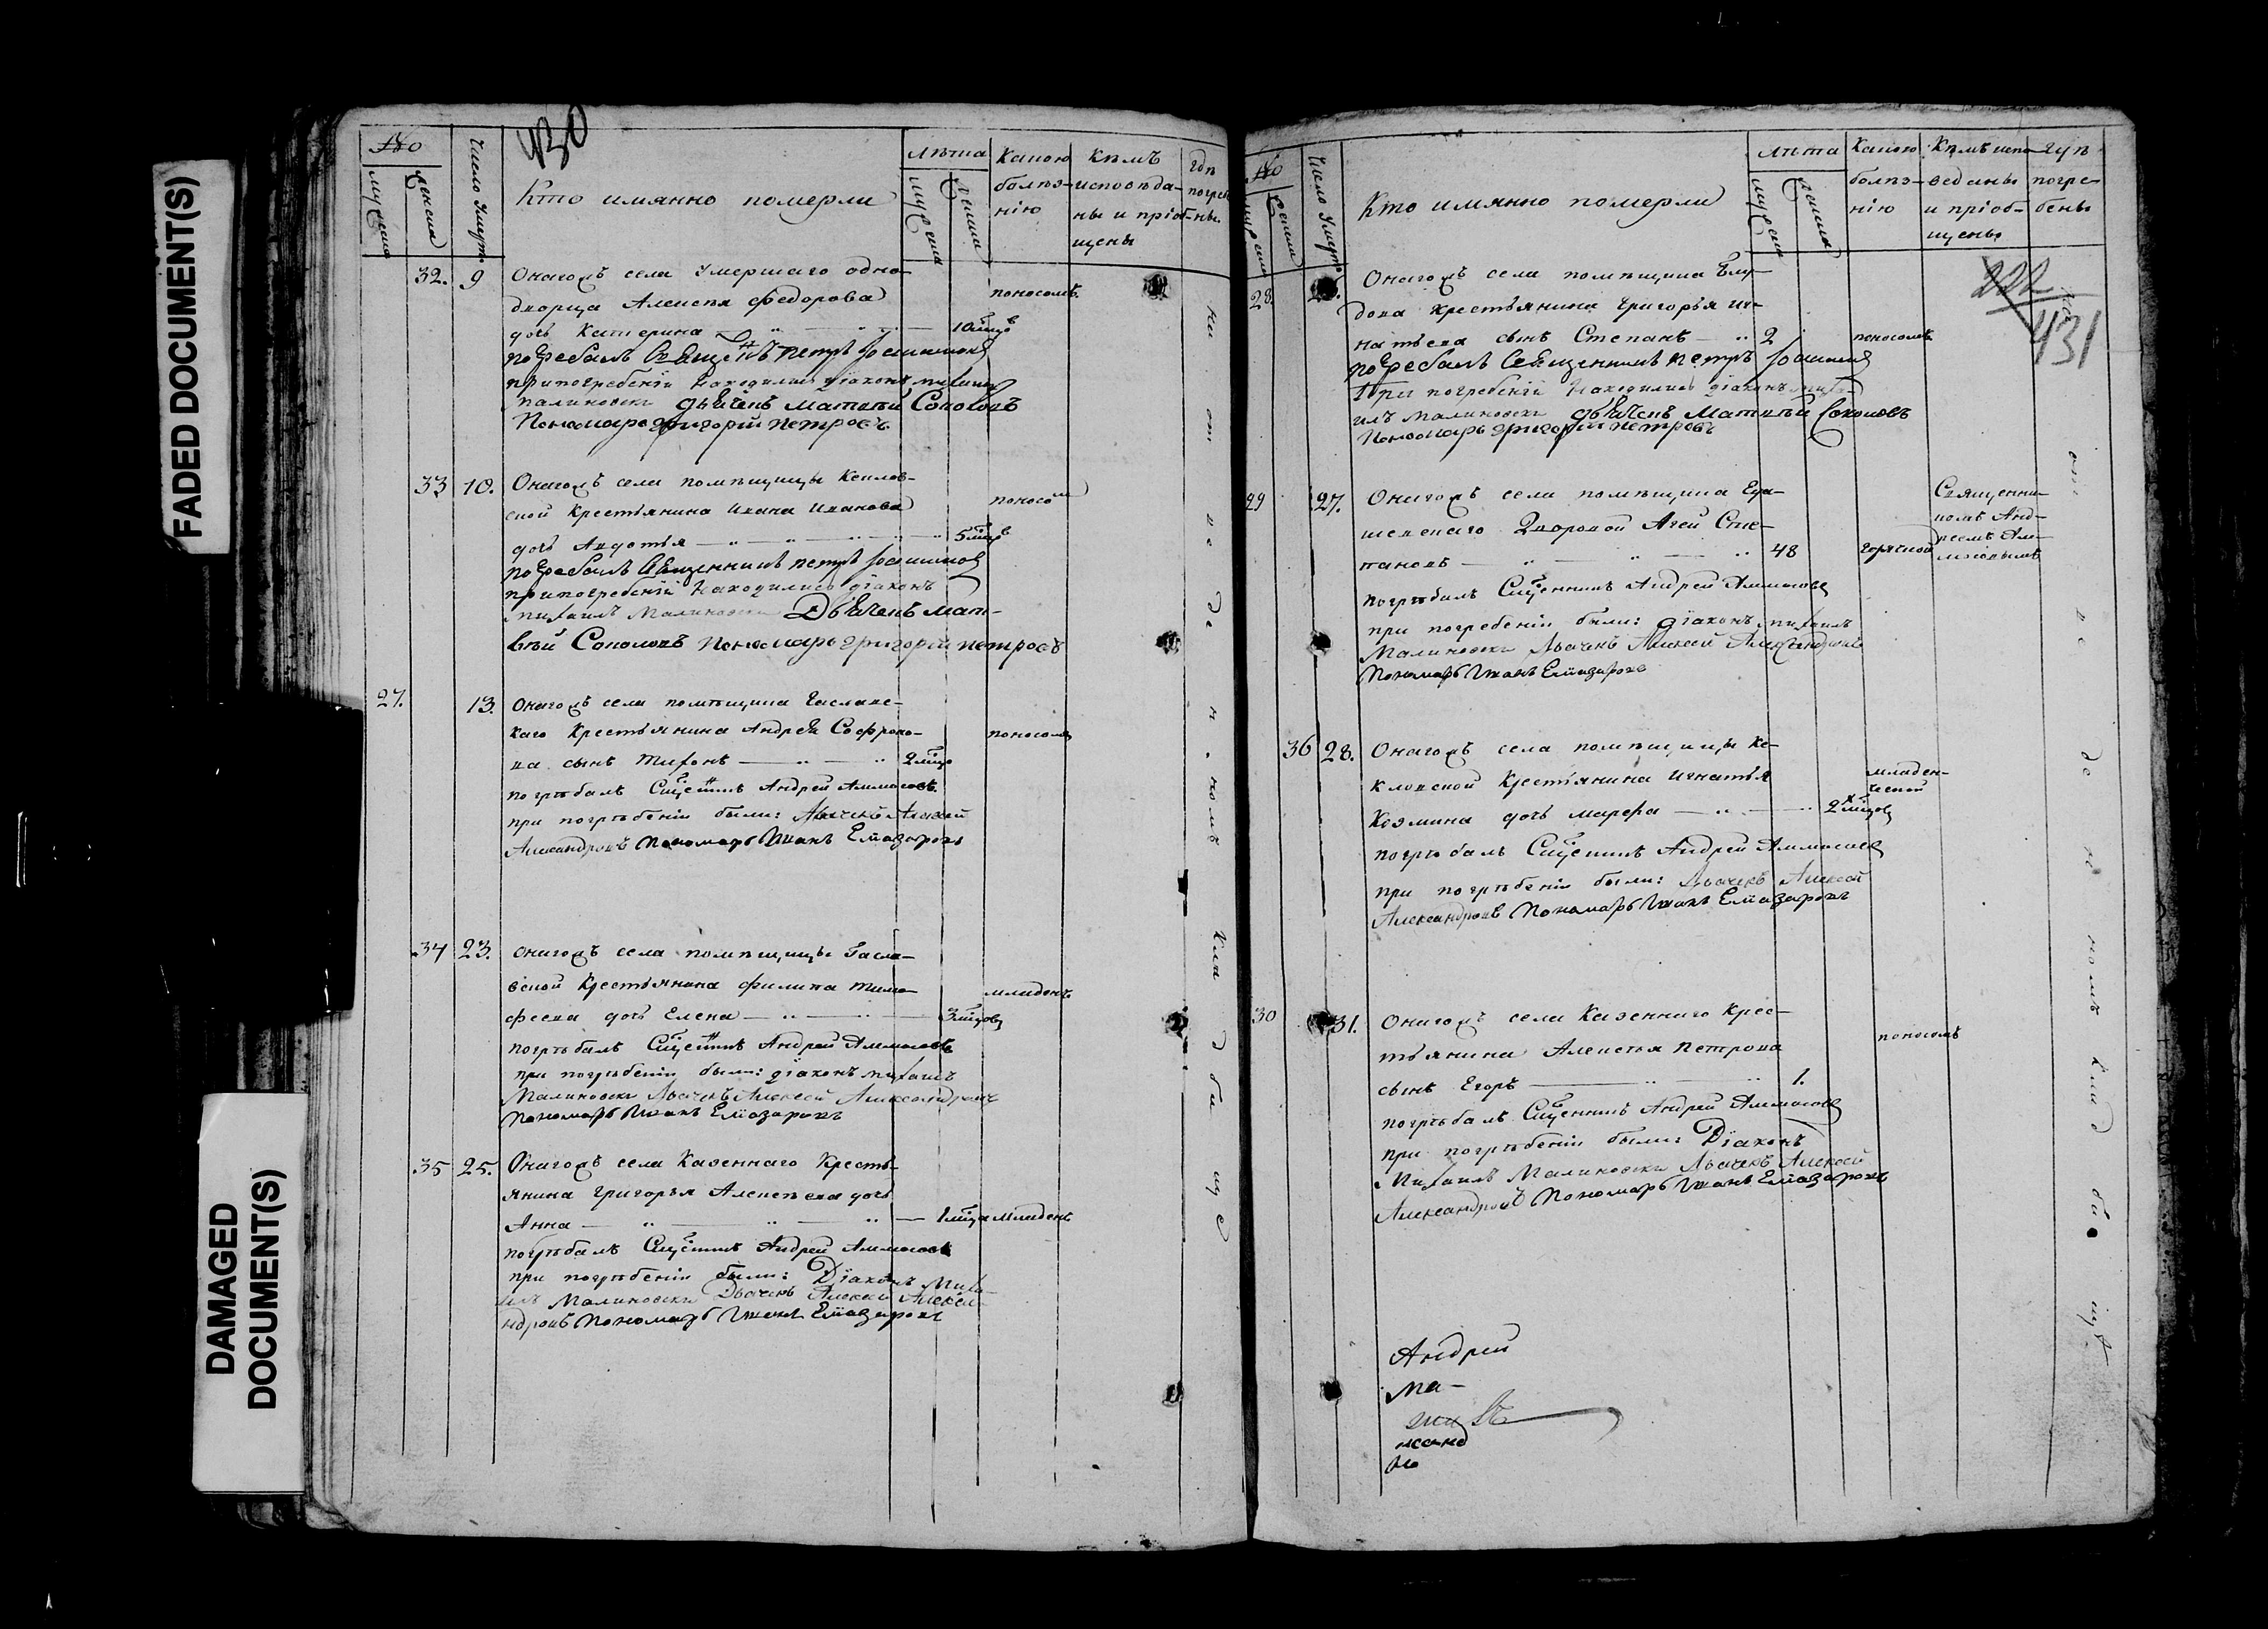 FADED DOCUMENT(S)
DAMAGED
DOCUMENT(S)
430
№
мужеска
женска
Число умерт.
Кто имянно померли
Лѣта
мужеска
женска
Какою
болѣз-
нію
Кѣмъ
исповѣда-
ны и пріоб-
щены
Гдѣ
погре
бены
32. 9
Онагожъ села умершаго одно-
дворца Алексѣя Федорова
дочь Катерина
10 мцов
поносомъ
погребалъ Священникъ Петръ
при погребеніи находились діаконъ Михаилъ
Малиновски дьячекъ Матвѣй Соколовъ
Пономарь Григорій Петровъ
33 10.
Онагожъ села помѣщицы Кеклов-
ской крестьянина Ивана Иванова
дочь Авдотья
5 мцов
поносом
погребалъ Священникъ Петръ
при погребеніи находились діаконъ
Михаилъ Малиновски Дьячекъ Мат-
вѣй Соколовъ Пономарь Григорій Петровъ
27. 13.
Онагожъ села помѣщика
каго крестьянина Андрея Софроно-
ва сынъ Тихонъ
2 мцо
поносомъ
погрѣбалъ Сщенникъ Андрей Аммосовъ
при погрѣбеніи были: Дьячекъ Алексей
Александровъ Пономарь Иванъ Елиазаровъ
34 23.
Онагожъ села помѣщицы Гасла-
вской крестьянина Филипа Тимо-
феева дочь Елена
3 мцов
младенъ
погрѣбалъ Сщенникъ Андрей Аммосовъ
при погрѣбеніи были: діаконъ Михаилъ
Малиновски Дьячекъ Алексей Александровъ
Пономарь Иванъ Елиазаровъ
35 25.
Онагожъ села Казеннаго Кресть-
янина Григорья Алексѣева дочь
Анна
1 мца
младенъ
погрѣбалъ Сщенникъ Андрей Аммосовъ
при погрѣбеніи были: Діаконъ Миха-
илъ Малиновски Дьячекъ Алексей Алекса-
ндровъ Пономарь Иванъ Елиазаровъ
на отведенномъ кладбище
№
мужеска
женска
Число умерт
Кто имянно померли
Лѣта
мужеска
женска
Какою
болѣз-
нію
Кѣмъ испо-
веданы
и пріоб-
щены
Гдѣ
погре-
бены
222
431
28.
Онагожъ села помѣщика
дова крестьянина Григорья Иг-
натьева сынъ Степанъ
2
поносомъ
погребалъ Священникъ Петръ
При погребеніи находились діаконъ Миха-
илъ Малиновски дьячекъ Матвѣй Соколовъ
Пономарь Григорій Петровъ
29 27.
Онагожъ села помѣщика
шевскаго Дворовой Агей Сте-
пановъ
48
горячкой
Священни-
комъ Анд-
реемъ Ам-
мосовымъ
погрѣбалъ Сщенникъ Андрей Аммосовъ
при погребеніи были: діаконъ Михаилъ
Малиновски Дьячекъ Алексей Александровъ
Пономарь Иванъ Елиазаровъ
36 28.
Онагожъ села помѣщицы Ке-
кловской Крестьянина Игнатья
Козмина дочь Марфа
2 мцов
младен-
ческой
погрѣбалъ Сщенникъ Андрей Аммосовъ
при погрѣбеніи были: Дьячекъ Алексей
Александровъ Пономарь Иванъ Елиазаровъ
30 31.
Онагожъ села Казеннаго Крес-
тьянина Алексѣя Петрова
сынъ Егоръ
1.
поносомъ
погрѣбалъ Сщенникъ Андрей Аммосовъ
при погрѣбеніи были: Діаконъ
Михаилъ Малиновски Дьячекъ Алексей
Александровъ Пономарь Иванъ Елиазаровъ
на отведенномъ кладбищѣ
Андрей